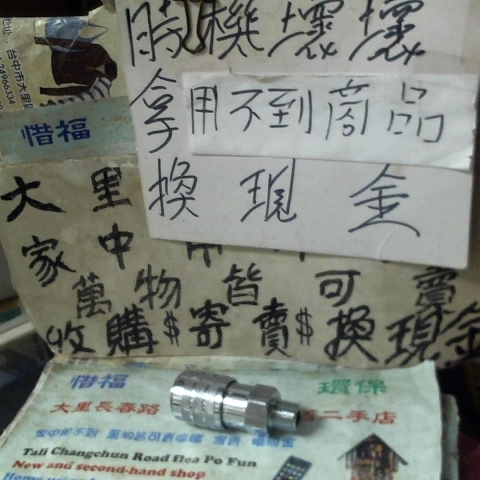 時機壞壞
拿用不到商品
換現金
台中市大里
惜福
大里
家中用
萬物皆可賣
收購$寄賣$換現金
惜福 環保
大里長春路 二手店
家中用不到 萬物皆可賣
Tali Changchun Road flea Po Fun
New and second-hand shop